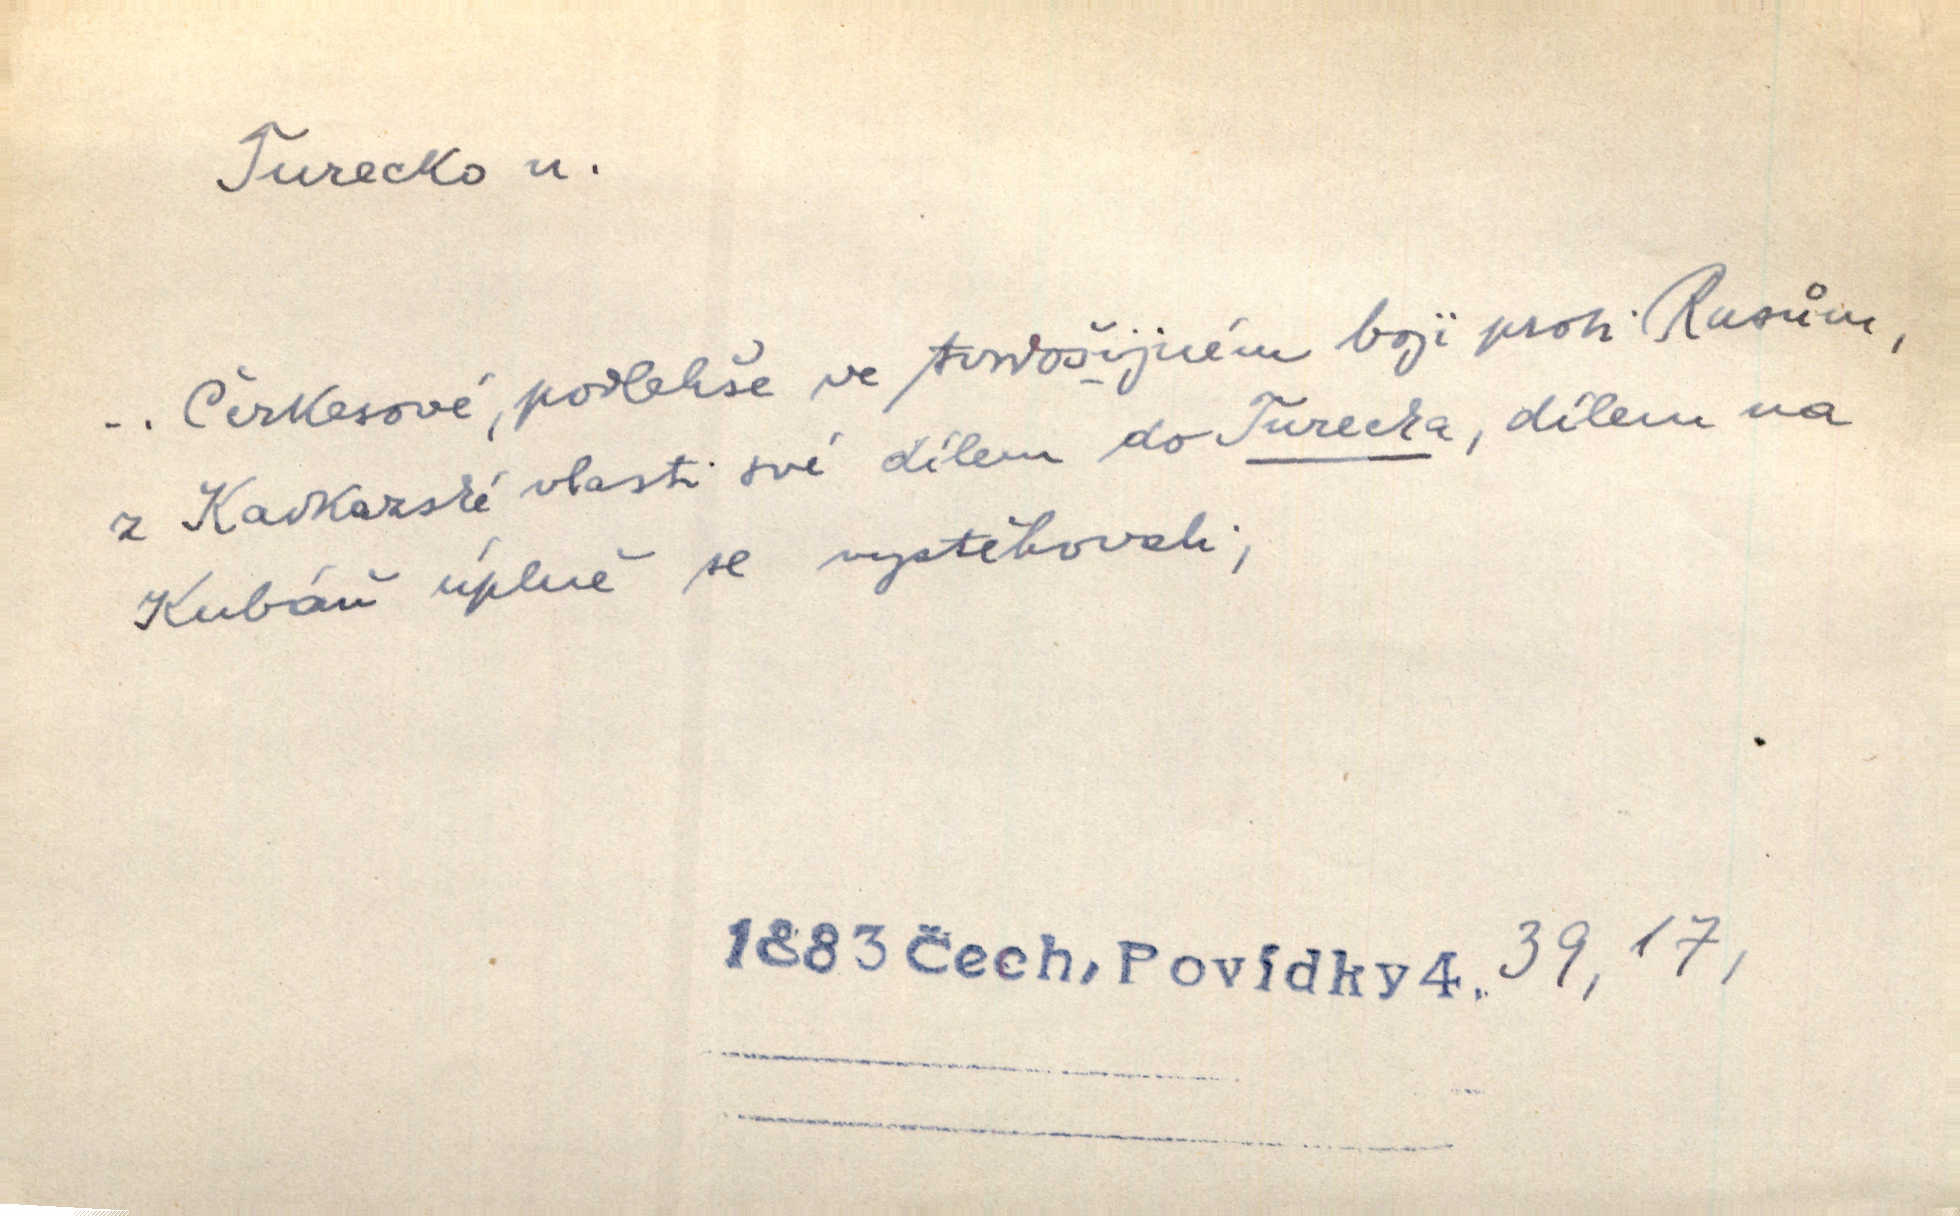 Turecko n.
.. Čerkesové, podlehše ve tvrdošijném boji proti Rusům,
z Kavkazské vlasti své dílem do Turecka, dílem na
Kubáň úplně se vystěhovali,
1883 Čech, Povídky 4. 39, 17,